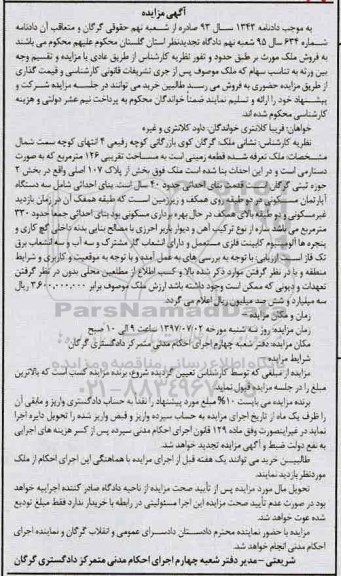 آگهی مزایده
به موجب دادنامه ۱۳۴۳ سال ۹۳ صادره از شعبه نهم حقوقی گرگان و متعاقب آن دادنامه
شماره ۶۳۴ سال ۹۵ شعبه نهم دادگاه تجدیدنظر استان گلستان محکوم علیهم محکوم می باشند
به فروش ملک مورث بر طبق حدود و ثغور نظریه کارشناس از طریق عادی یا مزایده و تقسیم وجه
بین ورثه به تناسب سهام که ملک موصوف پس از جری تشریفات قانونی کارشناسی و قیمت گذاری
از طریق مزایده حضوری به فروش می رسد طالبین خرید می توانند در جلسه مزایده شرکت و
پیشنهاد خود را ارائه و تسلیم نمایند ضمناً خواندگان محکوم به پرداخت نیم عشر دولتی و هزینه
کارشناسی محکوم شده اند.
خواهان: فریبا کلانتری خواندگان: داود کلانتری و غیره
نظریه کارشناس: نشانی ملک گرگان کوی بازرگانی کوچه رفیعی ۴ انتهای کوچه سمت شمال
مشخصات: ملک تعرفه شده قطعه زمینی است به مساحت تقریبی ۱۲۶ مترمربع که به صورت
دستدارمی است و در این احداث بنا شده است ملک فوق بخشی از پلاک ۱۰۷ اصلی واقع در بخش ۳
حوزه ثبتی گرگان است. قدمت بنای احداثی حدود ۴۰ سال است. بنای احداثی شامل سه دستگاه
آپارتمان مسکونی در دو طبقه روی همکف و زیرزمین است که طبقه همکف آن در زمان بازدید
غیرمسکونی و دو طبقه بالای همکف در حال بهره برداری مسکونی بود بنای احداثی جمعاً حدود ۳۳۰
مترمربع می باشد سازه از نوع ترکیب آهن و دیوار باربر آجری با مصالح بنایی بدنه داخلی گچ کاری و
پنجره ها آلومینیوم کابینت فلزی مستعمل و دارای انشعاب گاز مشترک و سه آب و سه انشعاب برق
تک فاز است. ارزیابی: با توجه به بررسی های به عمل آمده و با توجه به موقعیت و کاربری و شرایط
منطقه و با در نظر گرفتن موارد ذکر شده بالا و کسب اطلاع از مطلعین محلی بدون در نظر گرفتن
تعهدات و دیونی که ممکن است وجود داشته باشد ارزش ملک موصوف برابر ۳،۶۰۰،۰۰۰،۰۰۰ ریال
سه میلیارد و شش صد میلیون ریال اعلام می گردد.
زمان و مکان مزایده-
زمان مزایده: روز سه شنبه مورخه ۱۳۹۷/۰۷/۰۲ ساعت ۹ الی ۱۰ صبح
مکان مزایده: دفتر شعبه چهارم اجرای احکام مدنی متمرکز دادگستری گرگان
شرایط مزایده-
مزایده از مبلغی که توسط کارشناس تعیین گردیده شروع، برنده مزایده کسب است که بالاترین
مبلغ را در جلسه مزایده قبول نماید
برنده مزایده می بایست ۱۰% مبلغ مورد پیشنهاد را نقداً به حساب دادگستری واریز و مابقی آن
را ظرف یک ماه از تاریخ اجرای مزایده به حساب سپرده واریز و قبض واریز شده را تحویل دایره اجرا
نماید در غیراینصورت وفق ماده ۱۲۹ قانون اجرای احکام مدنی سپرده پس از کسر هزینه های اجرایی
به نفع دولت ضبط و آگهی مزایده تجدید خواهد شد.
طالبیـن خرید می توانند یک هفته قبل از اجرای مزایده با هماهنگی این اجرای احکام از ملک
موردنظر بازدید نمایند.
تحویل مال مورد مزایده پس از تأیید صحت مزایده از ناحیه دادگاه صادر کننده اجراییه خواهد
بود در صورت عدم تأیید صحت مزایده این اجرا مسئولیتی در رابطه با خریدار ندارد فقط مبلغ تودیع
شده عوت خواهد شد.
مزایده با حضور نماینده محترم دادستان دادسرای عمومی و انقلاب گرگان و نماینده اجرای
احکام مدنی انجام خواهد شد.
شریعتی -مدیر دفتر شعبه چهارم اجرای احکام مدنی متمرکز دادگستری گرگان
ParsNamadData
۰۲۱-۸۸۳۴۹۶۷۰